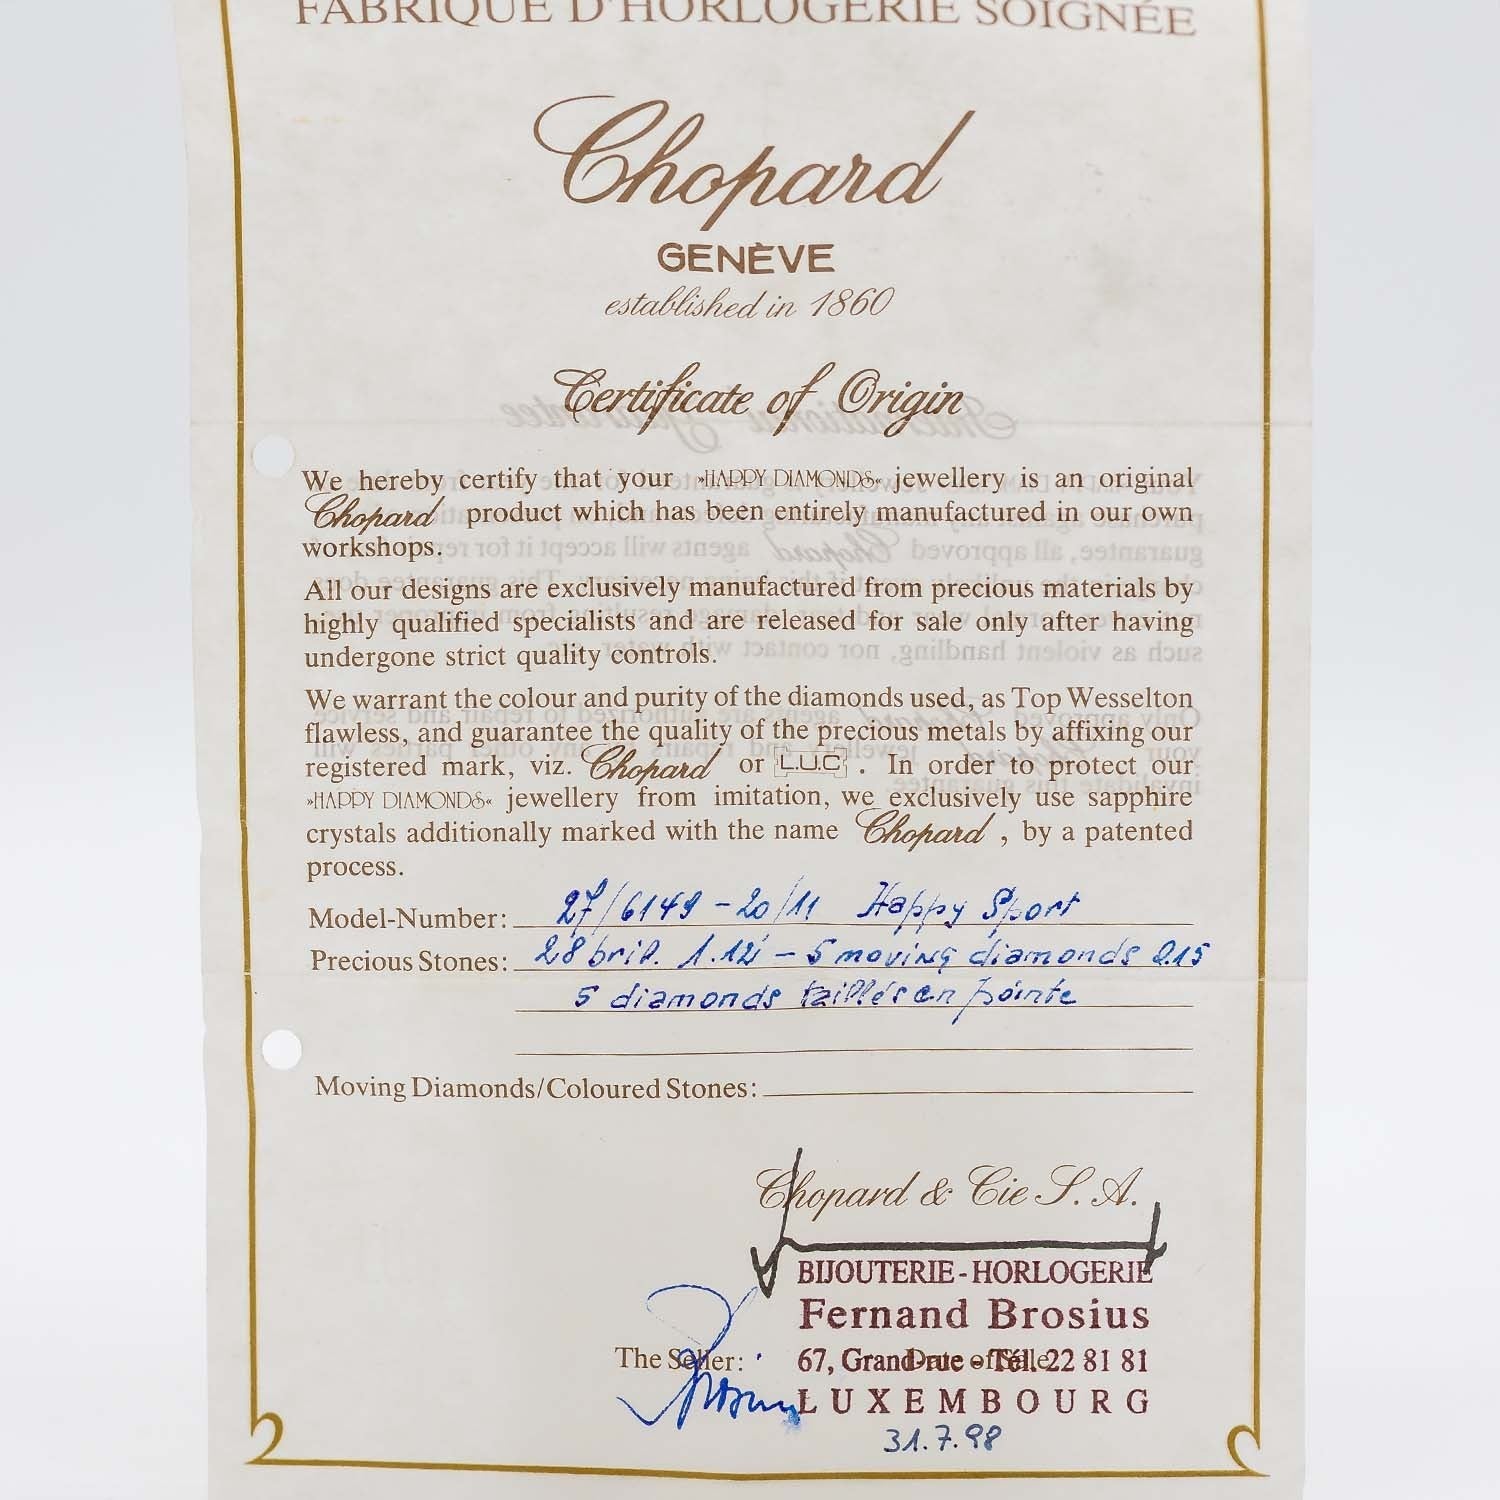 FABRIQUE D'HORLOGERIE SOIGNÉE
Chopard
GENÈVE
established in 1860
Certificate of Origin
We hereby certify that your »HAPPY DIAMONDS« jewellery is an original
Chopard product which has been entirely manufactured in our own
workshops.
All our designs are exclusively manufactured from precious materials by
highly qualified specialists and are released for sale only after having
undergone strict quality controls.
We warrant the colour and purity of the diamonds used, as Top Wesselton
flawless, and guarantee the quality of the precious metals by affixing our
registered mark, viz. Chopard or L.U.C . In order to protect our
»HAPPY DIAMONDS« jewellery from imitation, we exclusively use sapphire
crystals additionally marked with the name Chopard , by a patented
process.
Model-Number: 27/6149-20/11 Happy Sport
Precious Stones: 28 bril. 1.12 - 5 moving diamonds 0.15
5 diamonds taillés en pointe
Moving Diamonds/Coloured Stones:
Chopard & Cie S. A.
BIJOUTERIE - HORLOGERIE
Fernand Brosius
The Seller: 67, Grand-rue - Tél. 22 81 81
LUXEMBOURG
31.7.98